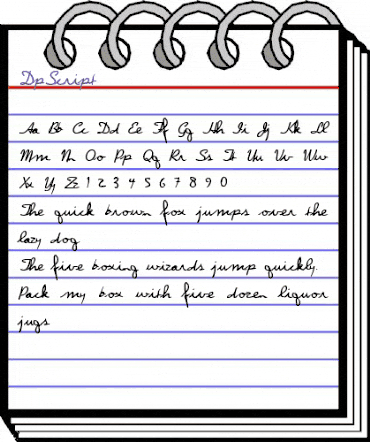 DpScript
Aa Bb Cc Dd Ee Ff Gg Hh Ii Jj Kk Ll
Mm Nn Oo Pp Qq Rr Ss Tt Uu Vv Ww
Xx Yy Zz 1 2 3 4 5 6 7 8 9 0
The quick brown fox jumps over the
lazy dog
The five boxing wizards jump quickly.
Pack my box with five dozen liquor
jugs